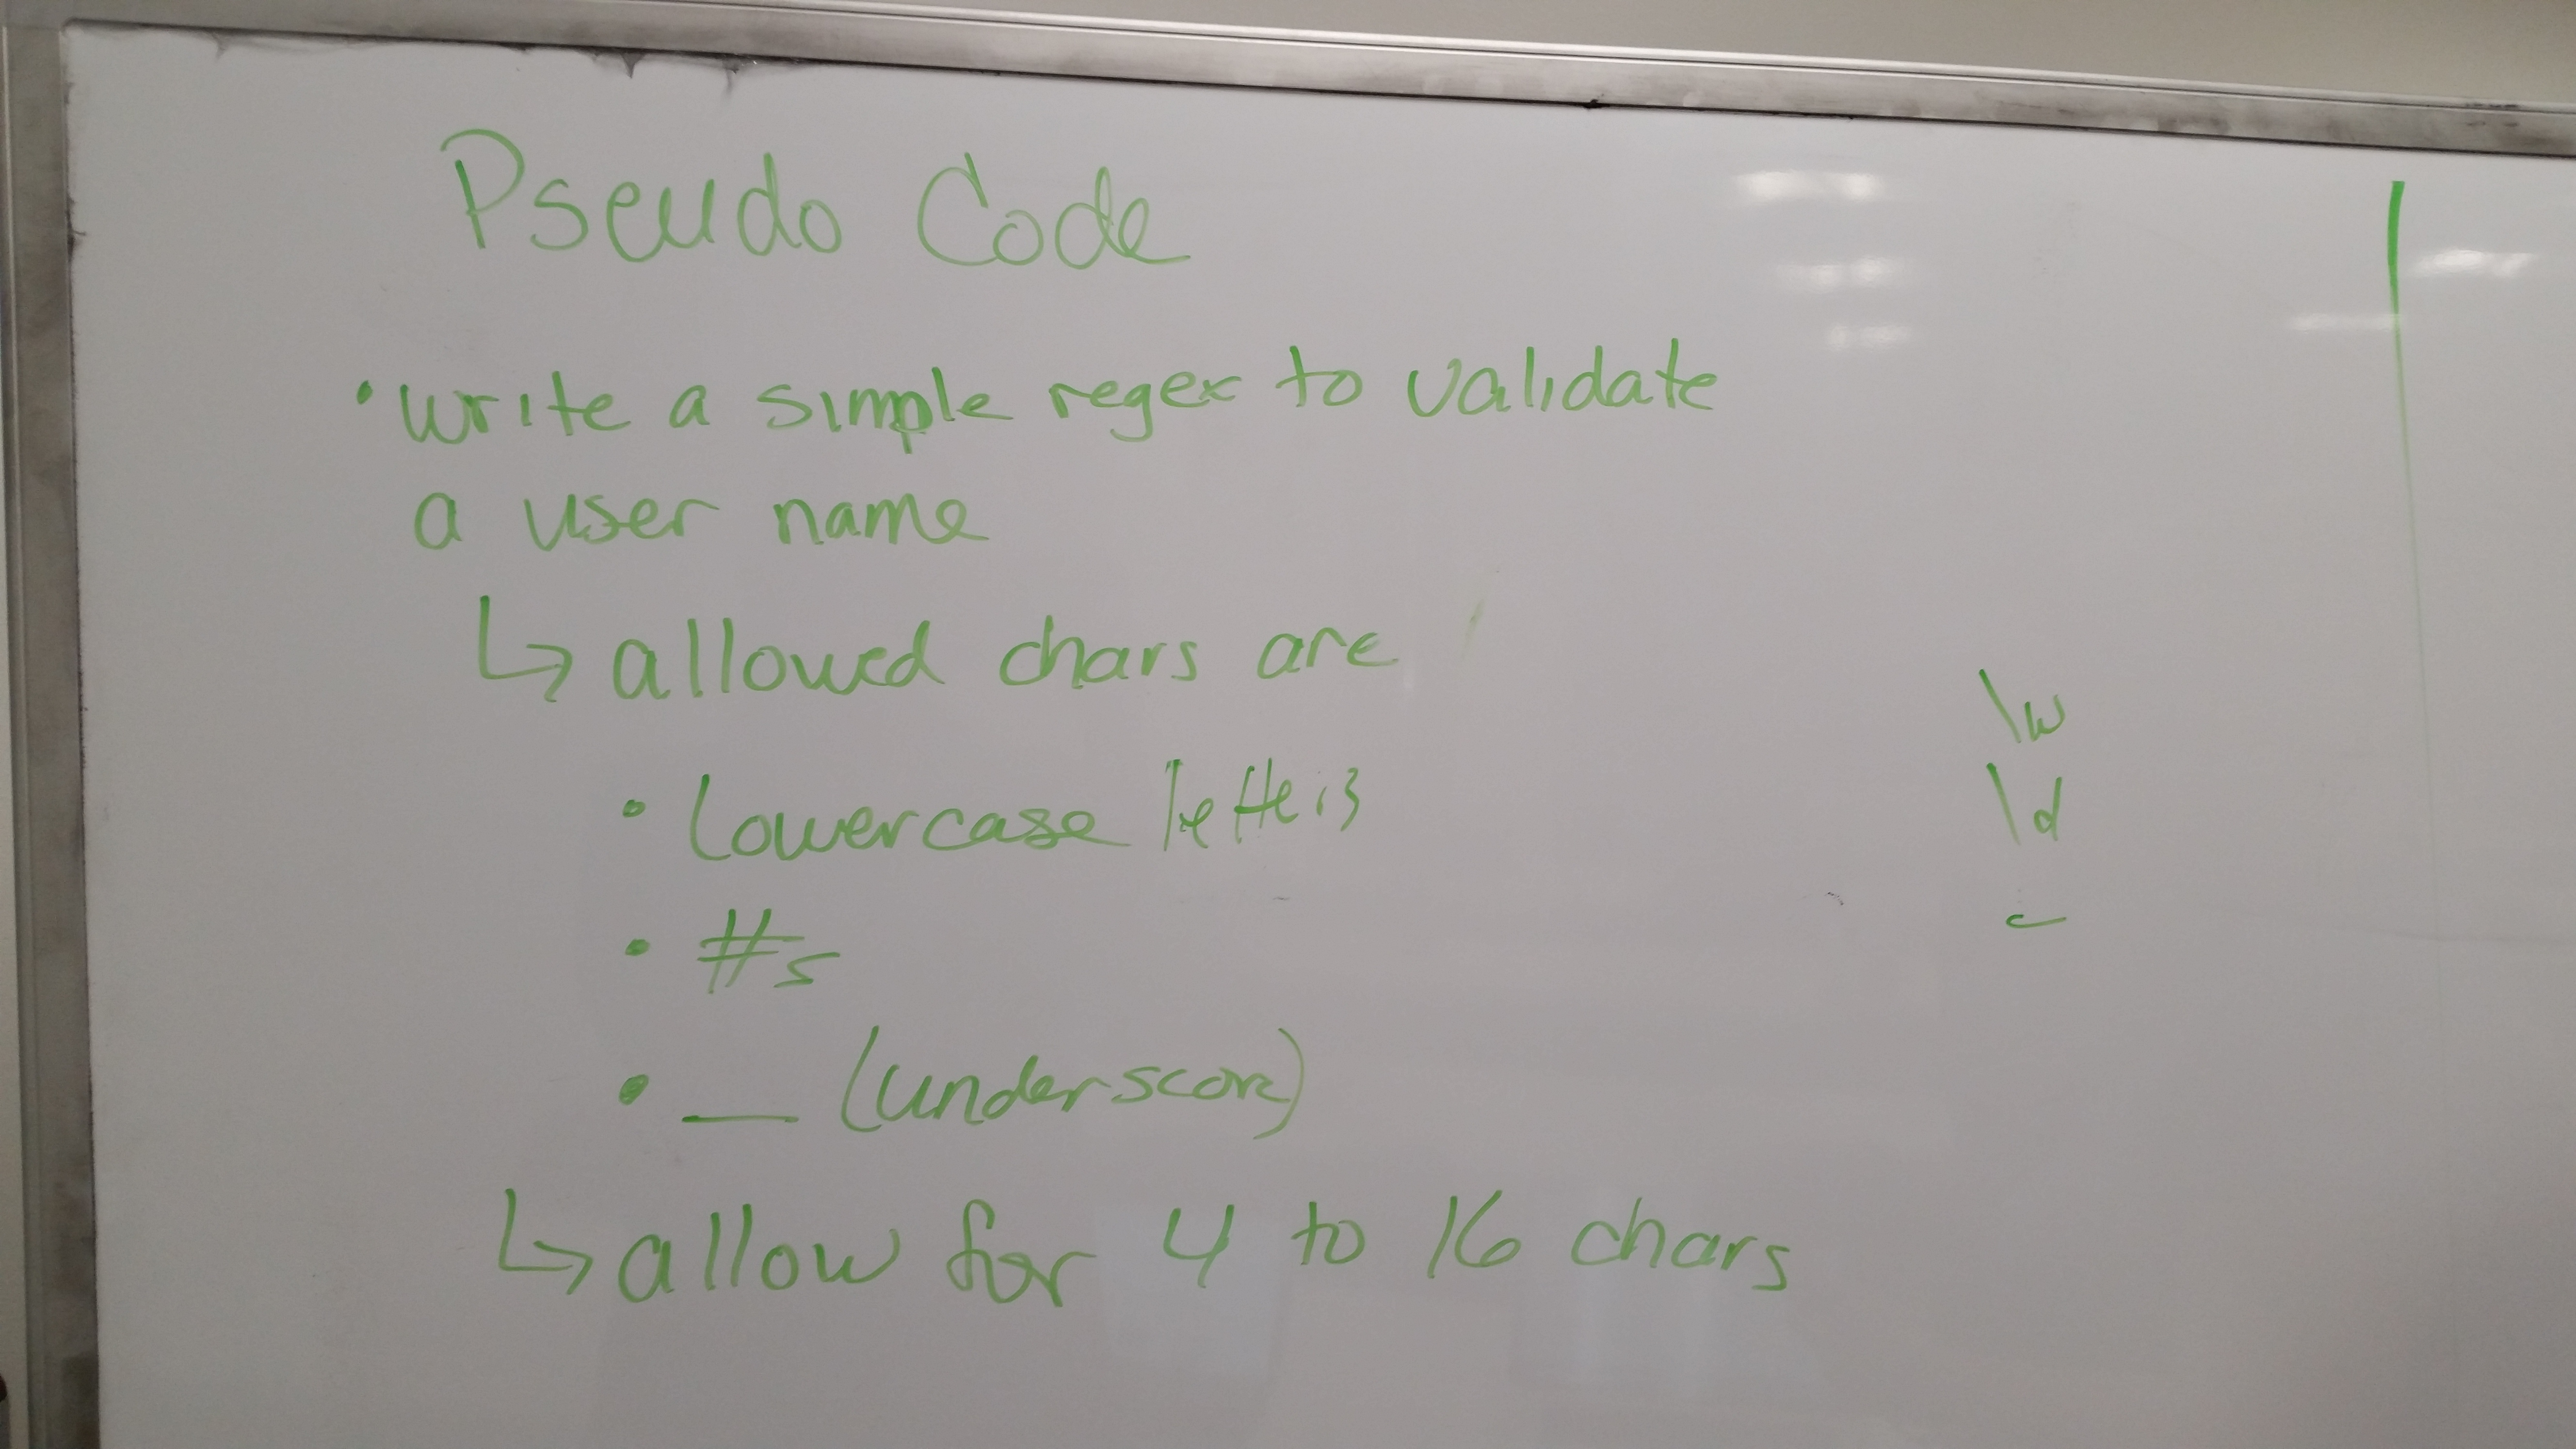 Pseudo Code
• write a simple regex to validate
a user name
↳ allowed chars are
• Lowercase letters
• #s
• _ (underscore)
↳ allow for 4 to 16 chars
\w
\d
_